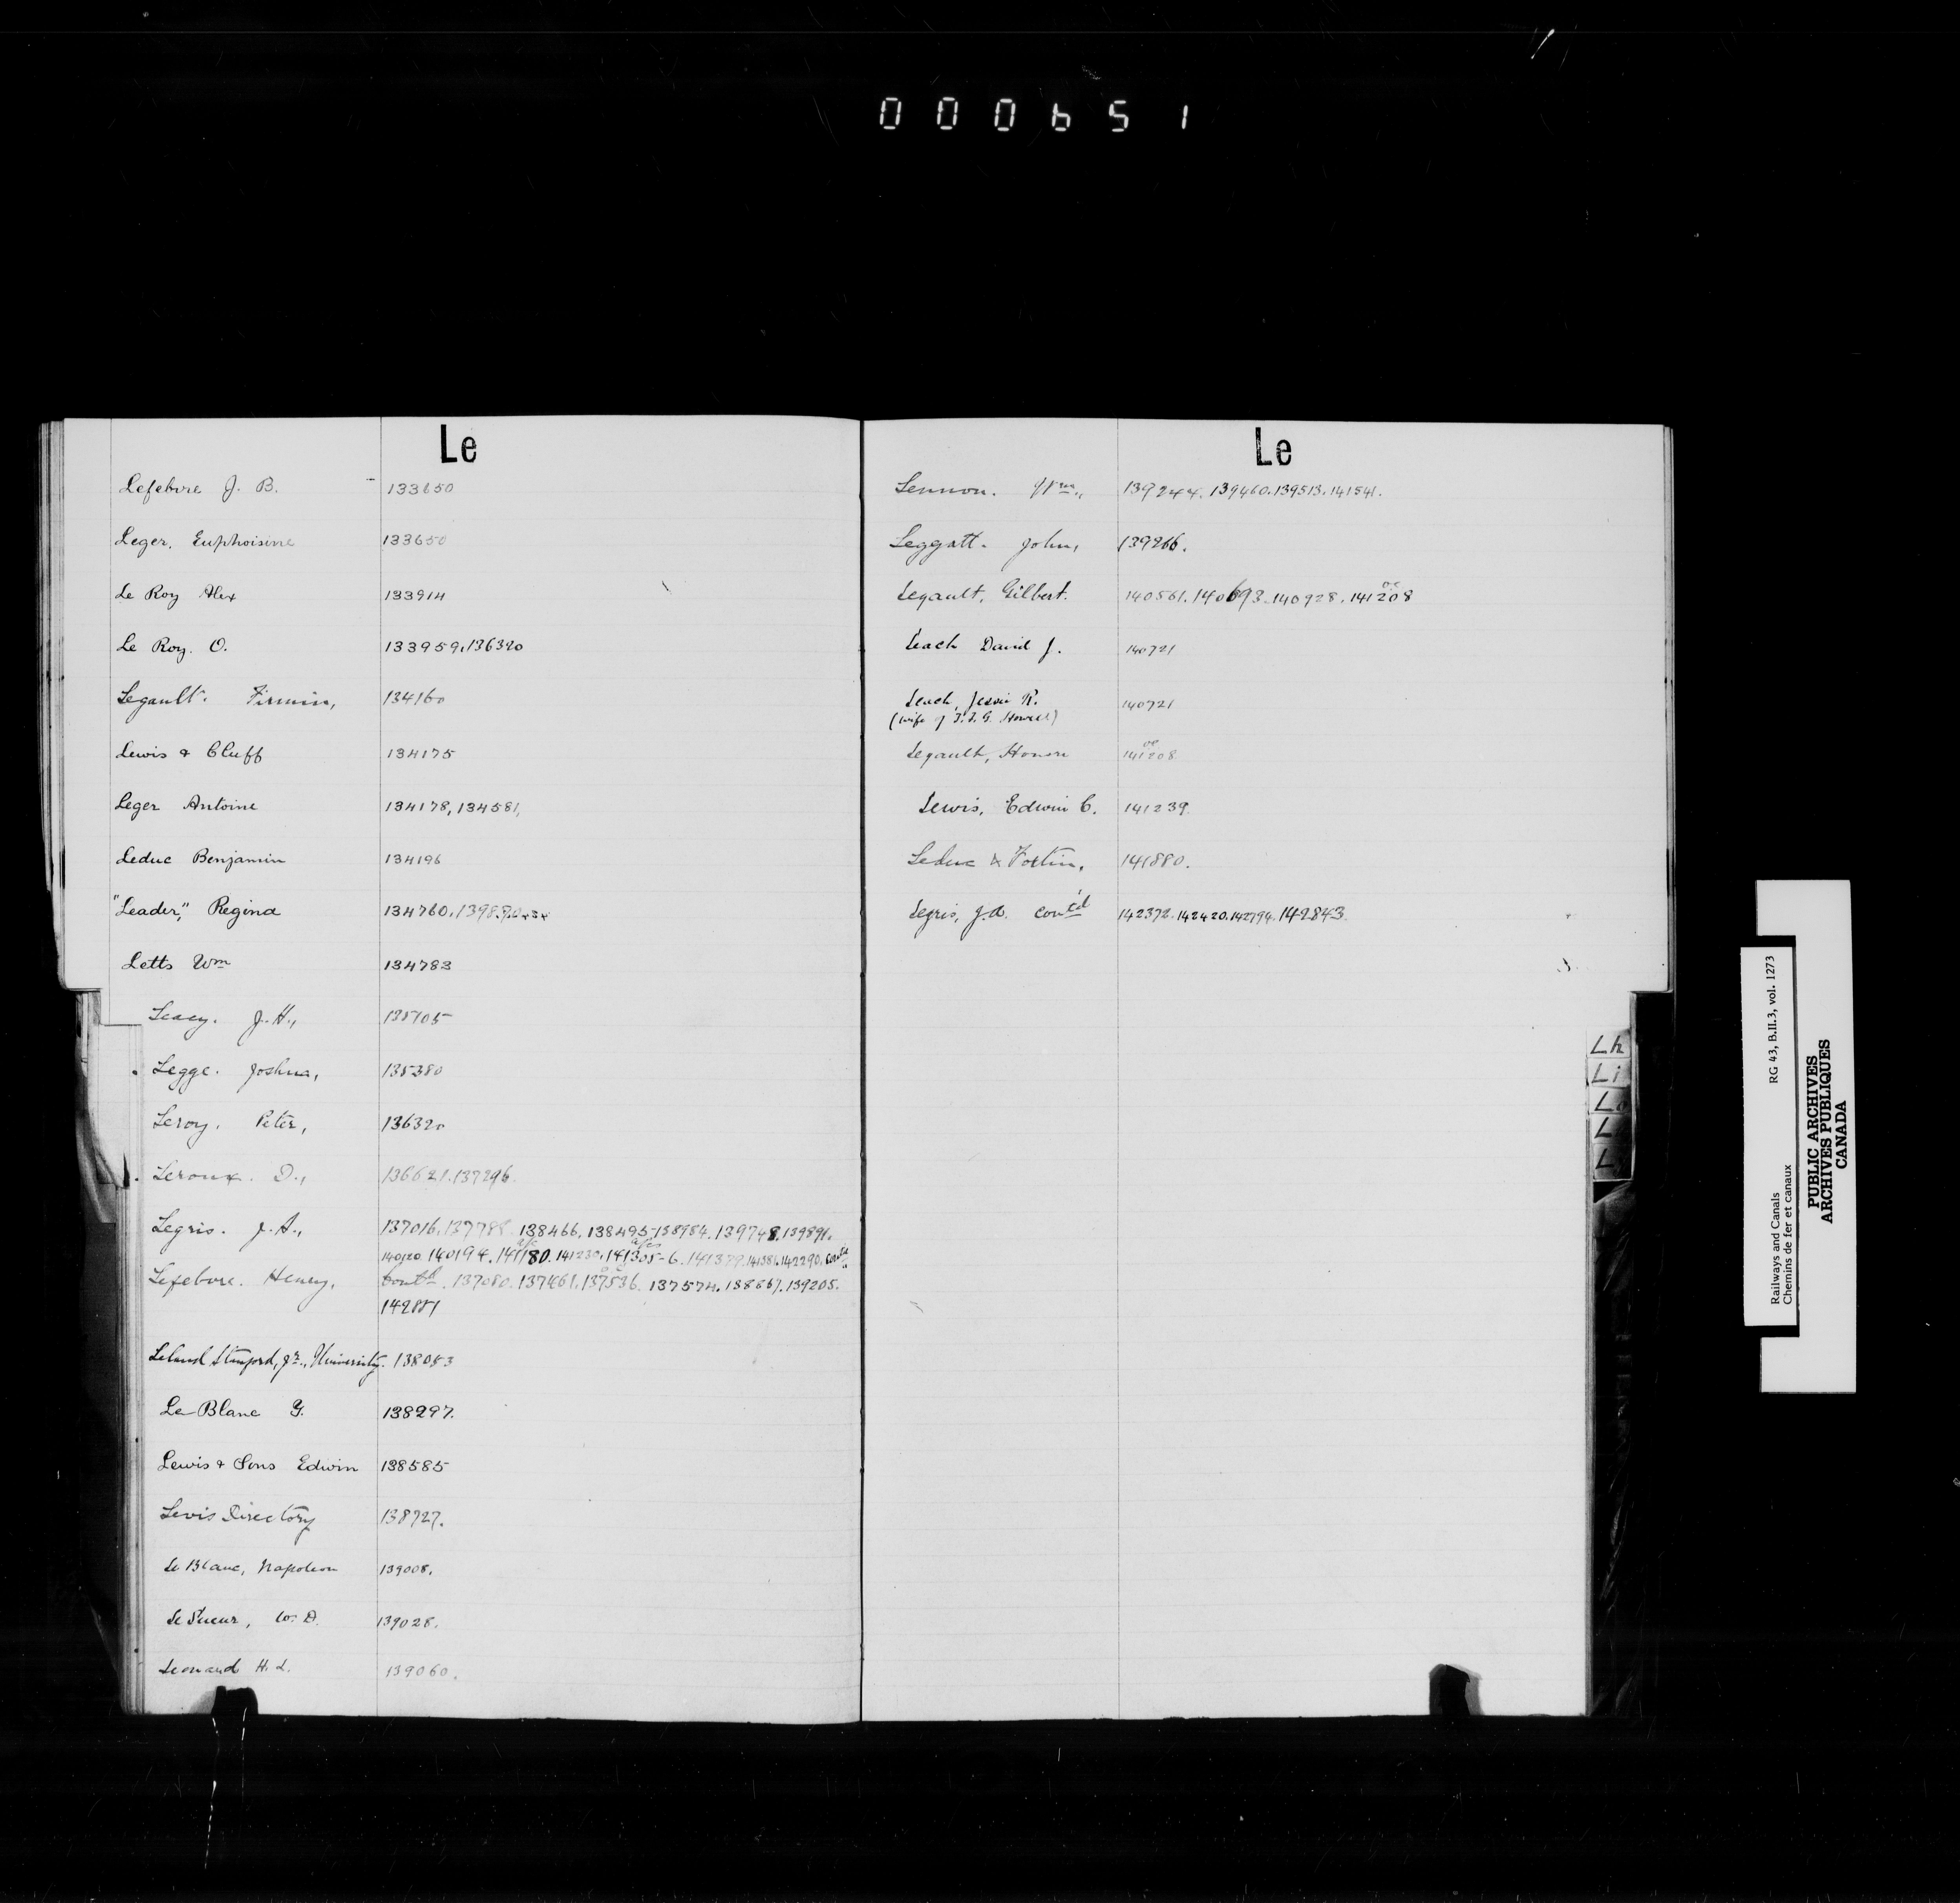 000651
Le
Lefebvre J. B. 133650
Leger, Euphoisine 133650
Le Roy Alex 133914
Le Roy. O. 133959, 136320
Legault. Firmin, 134160
Lewis & Cluff 134175
Leger Antoine 134178, 134581,
Leduc Benjamin 134196
"Leader," Regina 134760, 139890
Letts Wm 134783
Leacy. J. H., 135105
Legge. Joshua, 135380
Leroy, Peter, 136320
Leroux. D., 136621. 137296.
Legris. J. A., 137016, 137788. 138466. 138495-138984. 139748. 139891.
140120. 140194. 141180. 141230. 141305-6. 141379. 141381. 142290. Contd
Lefebvre. Henry, Contd. 137080. 137461. 137536. 137574. 138867. 139205.
142851
Leland Stanford, Jr., University. 138053
Le Blanc G. 138297.
Lewis & Sons Edwin 138585
Levis Directory 138727.
Le Blanc, Napoleon 139008.
Le Sueur, W. D. 139028.
Leonard H. L. 139060.
Le
Lennon. Wm., 139244. 139460. 139513. 141541.
Leggatt. John, 139266.
Legault, Gilbert. 140561. 140693. 140928. 141208
Leach David J. 140721
Leach, Jessie R. 140721
(wife of J. J. G. Howell)
Legault, Honore 141208
Lewis, Edwin C. 141239.
Leduc & Fortin, 141880.
Legris, J. A. cont'd 142372. 142420. 142794. 142843.
Lh
Li
Lo
L
L
RG 43, B.II.3, vol. 1273
Railways and Canals
Chemins de fer et canaux
PUBLIC ARCHIVES
ARCHIVES PUBLIQUES
CANADA